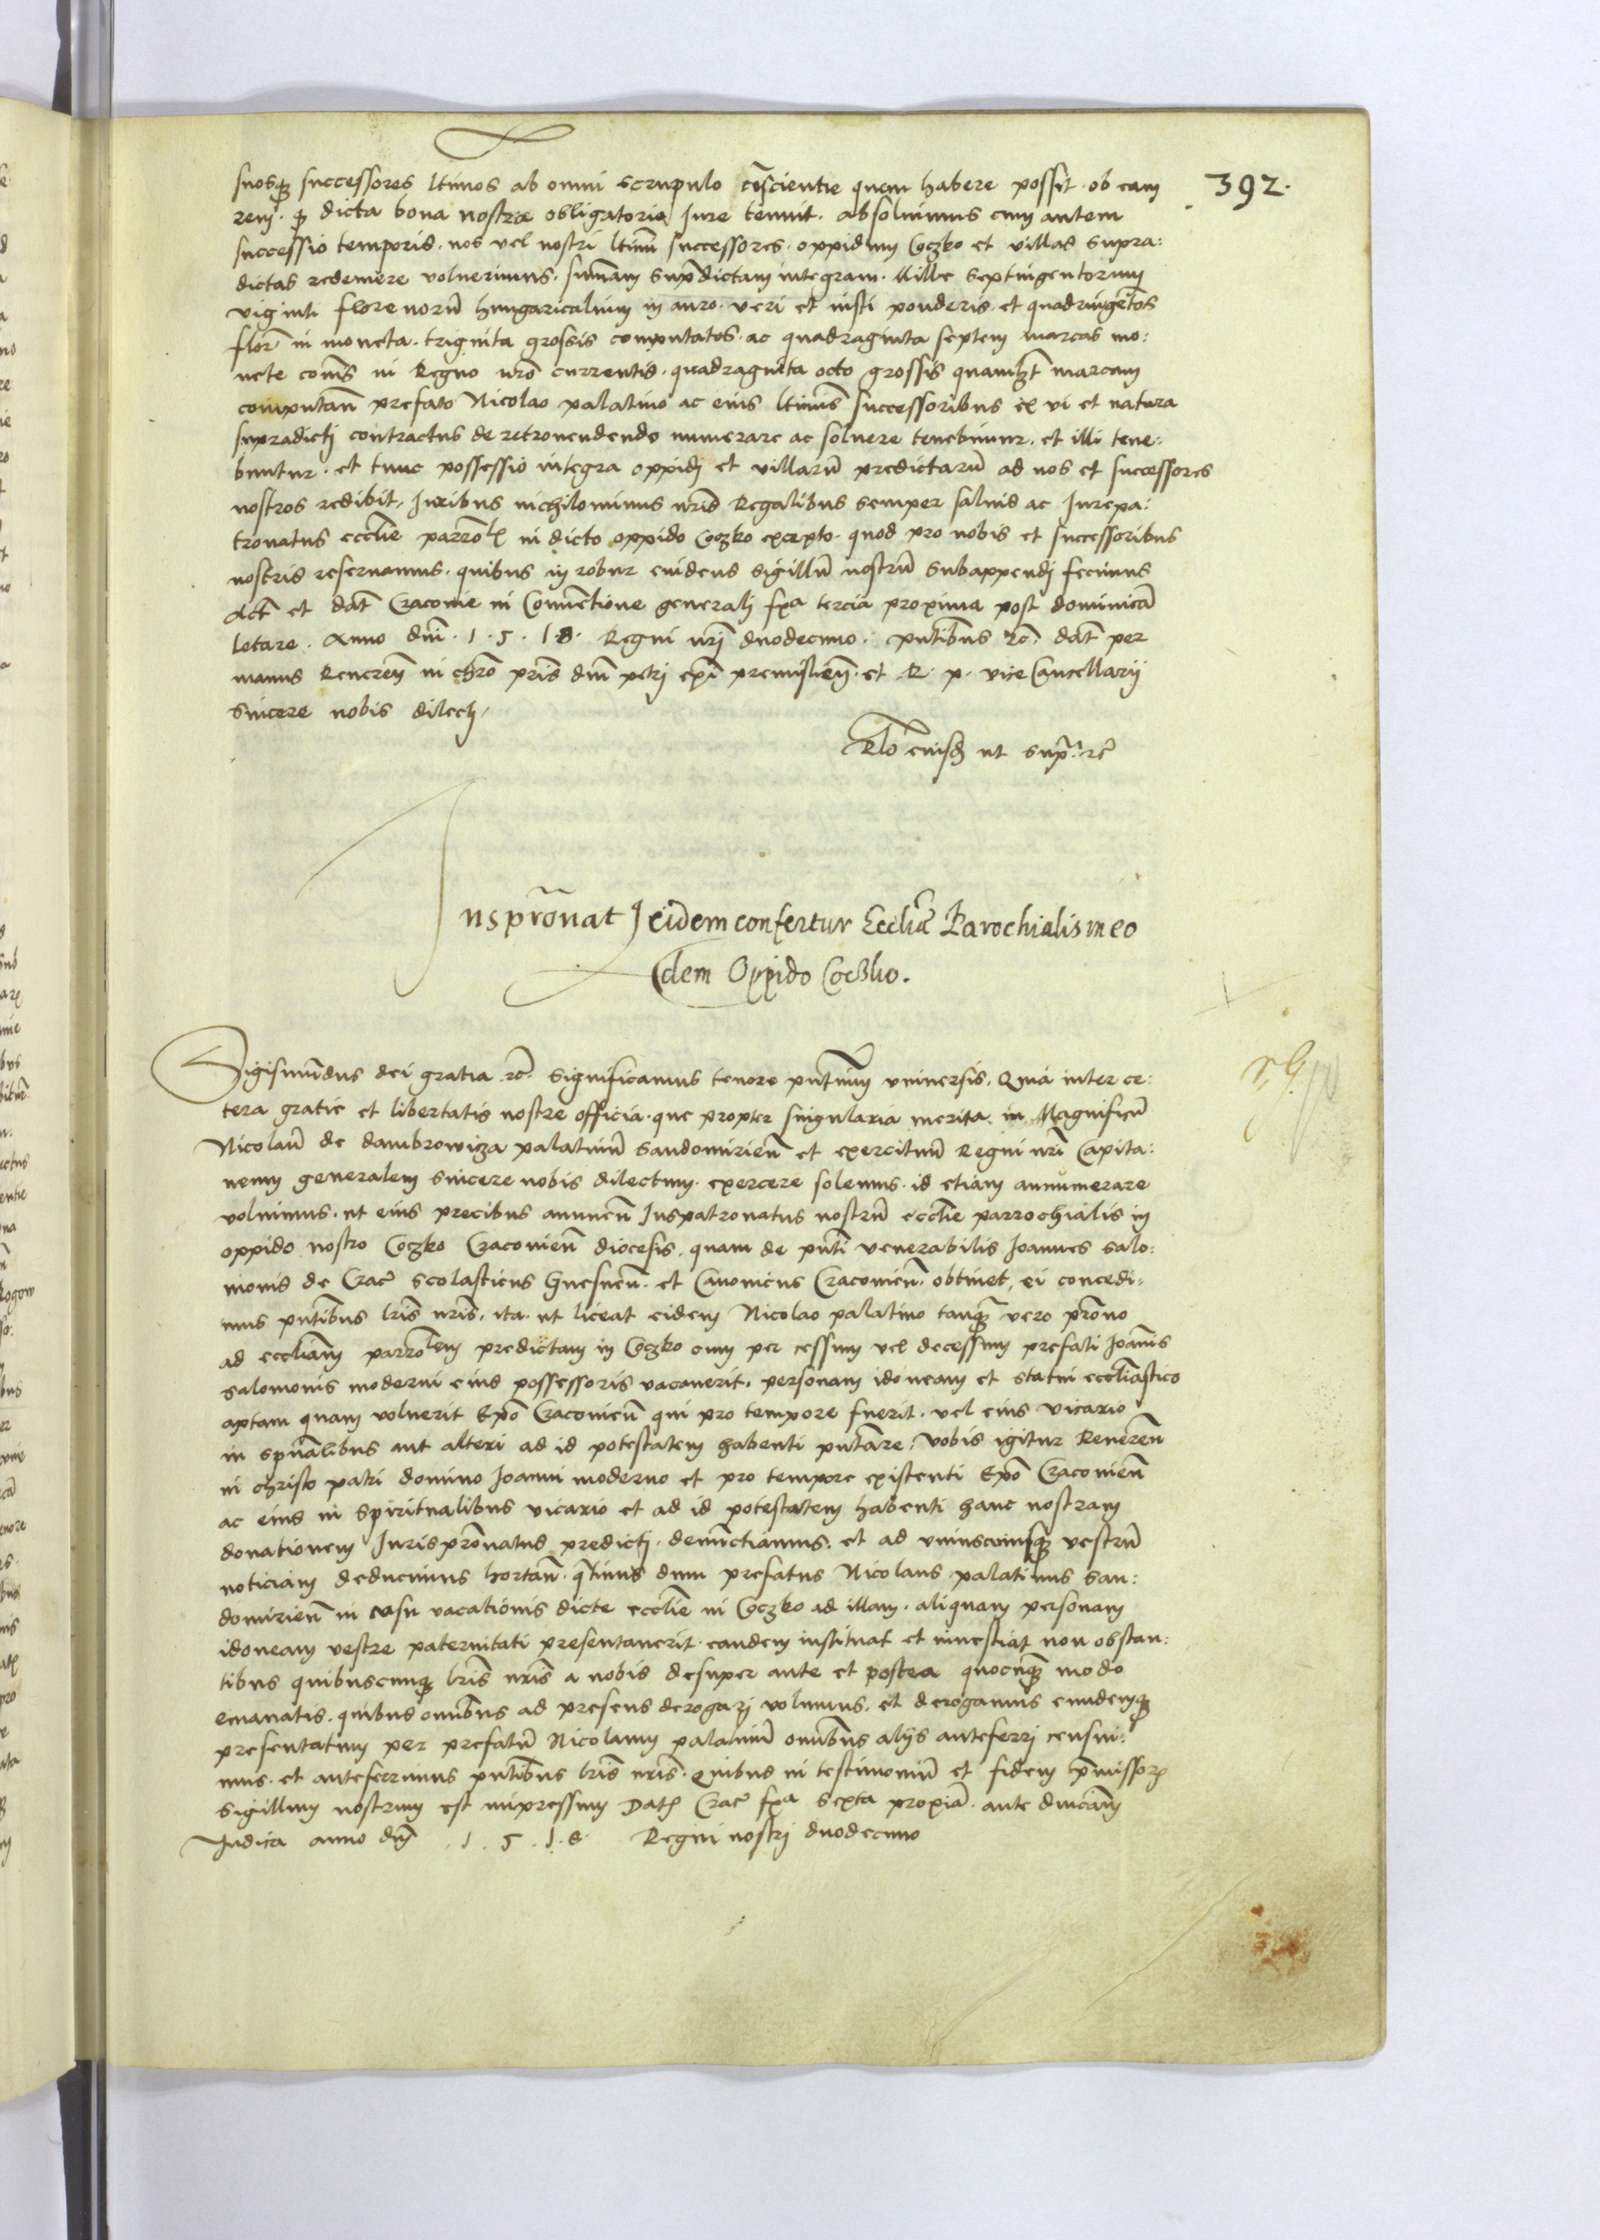 392.
suosq successores ltimos ab omni scrupulo cōscientie quem habere possit ob eam
rem q dicta bona nostra obligatoria Jure tenuit. absoluimus cum autem
successio temporis. nos vel nostri ltimi successores. oppidum Coczko et villas supra:
dictas redemere voluerimus. sumam supradictam integram. Mille septingentorum
viginti florenorū hungaricalium in auro. veri et iusti ponderis et quadringētos
flor in moneta. triginta grossis computatos. ac quadraginta septem marcas mo:
nete cōis in Regno nro currentis. quadraginta octo grossis quamlt marcam
computan prefato Nicolao palatino ac eius ltimis successoribus ex vi et natura
supradicti contractus de retrouendendo numerare ac soluere tenebimur. et illi tene:
buntur. et tunc possessio integra oppidi et villarū predictarū ad nos et successores
nostros redibit, Juribus nichilominus nris Regalibus semper saluis ac Jurepa:
tronatus ecclie parrol in dicto oppido Coczko excepto. quod pro nobis et successoribus
nostris reseruamus. quibus in robur euidens sigillū nostrū subappendi fecimus
Act et dat Cracouie in Conuētione generali fxa tercia proxima post dominicā
letare. Anno dni. 1.5.18. Regni nri duodecimo. pntibus rc. dat per
manus Reueren in chro pris dni petri epi premislien. et R. p. vice Cancellarij
sincere nobis dilecti,
Rlo eiusd ut supra. rc
Jus pronatus eidem confertur Eccliæ Parochialis in eo
dem Oppido Coczko.
Sigismūdus dei gratia rc. significamus tenore pntium vniuersis. Quia inter ce:
tera gratie et libertatis nostre officia. que propter singularia merita in Magnificū
Nicolaū de dambrowicza palatinū Sandomirien et exercituū Regni nri Capita:
neum generalem sincere nobis dilectum. exercere solemus. id etiam annumerare
volumus. ut eius precibus annuen Juspatronatus nostrū ecclie parrochialis in
oppido nostro Coczko Cracouien diocesis. quam de pnti venerabilis Joannes salo:
monis de Crac scolasticus Gnesnen. et Canonicus Cracouien. obtinet, ei concedi:
mus pntibus lris nris. ita. ut liceat eidem Nicolao palatino tanq vero prono
ad eccliam parrolem predictam in Coczko cum per cessum vel decessum prefati Joānis
salomonis moderni eius possessoris vacauerit. personam idoneam et statui eccliastico
aptam quam voluerit Epo Cracouien qui pro tempore fuerit. vel eius vicario
in spūalibus aut alteri ad id potestatem habenti pntare. Vobis igitur Reueren
in christo patri domino Joanni moderno et pro tempore existenti Epo Cracouien
ac eius in spiritualibus vicario et ad id potestatem habenti hanc nostram
donationem Jurispronatus predicti. denuctiamus. et ad vniuscuiusq vestrū
noticiam deducimus hortan. qtinus dum prefatus Nicolaus palatinus San:
domirien in casu vacationis dicte ecclie in Coczko ad illam. aliquam personam
idoneam vestre paternitati presentauerit. eandem instituat et inuestiat non obstan:
tibus quibuscunq lris nris a nobis desuper ante et postea quocūq modo
emanatis. quibus omībus ad presens derogari volumus. et derogamus eundemq
presentatum per prefatū Nicolaum palatinū omībus alijs anteferri censui:
mus. et anteferimus pntibus lris nris. Quibus in testimoniū et fidem pmissor
sigillum nostrum est impressum Dat Crac fxa sexta proxia. ante dnicam
Judica anno dni .1.5.1.8. Regni nostri duodecimo